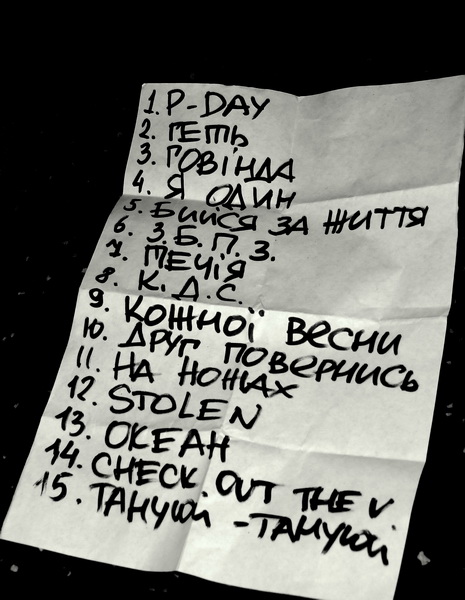 1. P-DAY
2. ГЕТЬ
3. ГОВІНДА
4. Я ОДИН
5. БИЙСЯ ЗА ЖИТТЯ
6. З. Б. П. З.
7. ТЕЧІЯ
8. К. Д. С.
9. КОЖНОЇ ВЕСНИ
10. ДРУГ ПОВЕРНИСЬ
11. НА НОЖАХ
12. STOLEN
13. ОКЕАН
14. CHECK OUT THE V
15. ТАНЦЮЙ - ТАНЦЮЙ